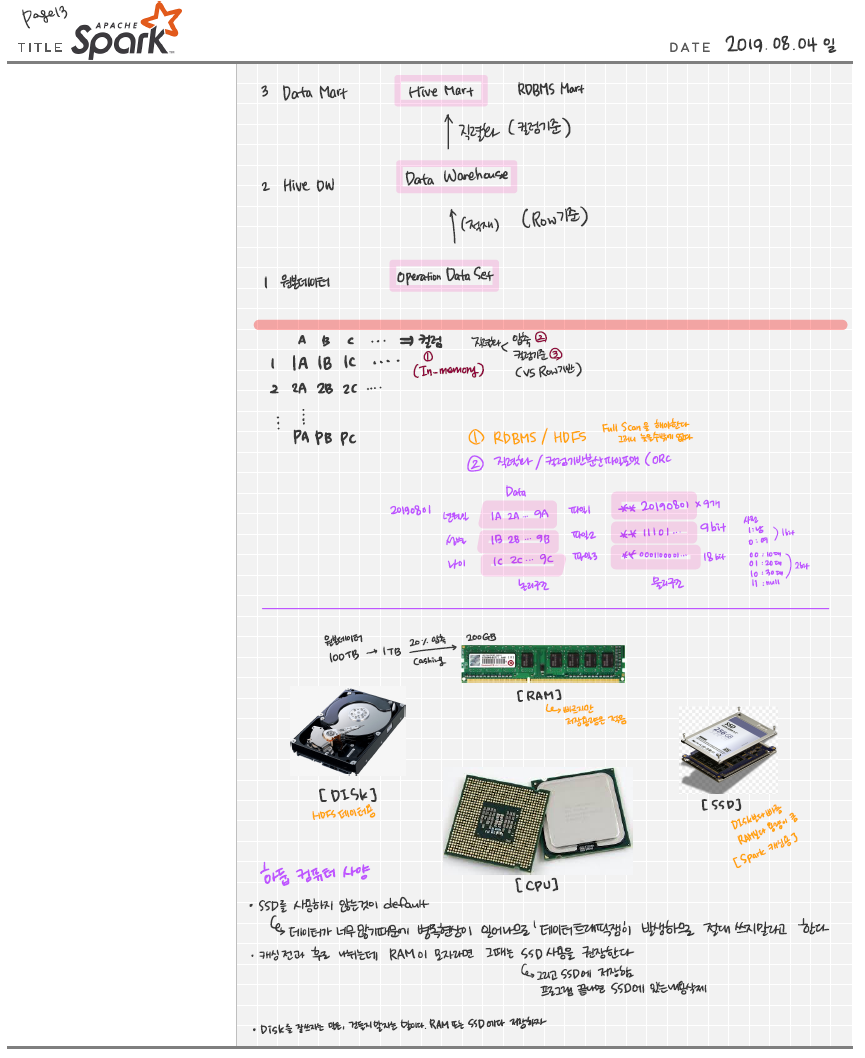 Page13
TITLE APACHE Spark
DATE 2019.08.04 일
3 Data Mart Hive Mart RDBMS Mart
직렬화 (컬럼기준)
2 Hive DW Data Warehouse
(적재) (Row기준)
1 원본데이터 Operation Data Set
A B C ... ⇒ 컬럼
직렬화 < 압축 ②
컬럼기준 ③
(VS Row기반)
①
(In-memory)
1 1A 1B 1C ....
2 2A 2B 2C ....
PA PB PC
① RDBMS / HDFS Full Scan을 해야한다
② 직렬화 / 컬럼기반분산파일포맷 (ORC
Data
20190801
1A 2A ... 9A 파일1 ** 20190801 x 9개
성별 1B 2B ... 9B 파일2 ** 11101 ... 9bit
나이 1C 2C ... 9C 파일3 ** 000100001... 18bit
논리구간 물리구간
1:남
0:여
1bit
00:10대
01:20대
10:30대
11:null
2bit
원본데이터
100TB → 1TB 20% 압축 Cashing → 200GB
[RAM]
빠르지만
저장용량은 적음
SSD
256GB
[DISK]
HDFS 데이터용
[SSD]
DISK보다빠름
RAM보다 용량이 큼
[Spark 캐싱용]
[CPU]
하둡 컴퓨터 사양
• SSD를 사용하지 않는것이 default
↳ 데이터가 너무많기때문에 병목현상이 일어나므로 '데이터트래픽잼'이 발생하므로 절대 쓰지말라고 한다
• 캐싱 전과 후로 나뉘는데 RAM이 모자라면 그때는 SSD 사용을 권장한다
↳ 그리고 SSD에 저장함
프로그램 끝나면 SSD에 있는내용삭제
• Disk를 잘쓰자는 말은, 건들지말자는 말이다. RAM 또는 SSD에다 저장하자